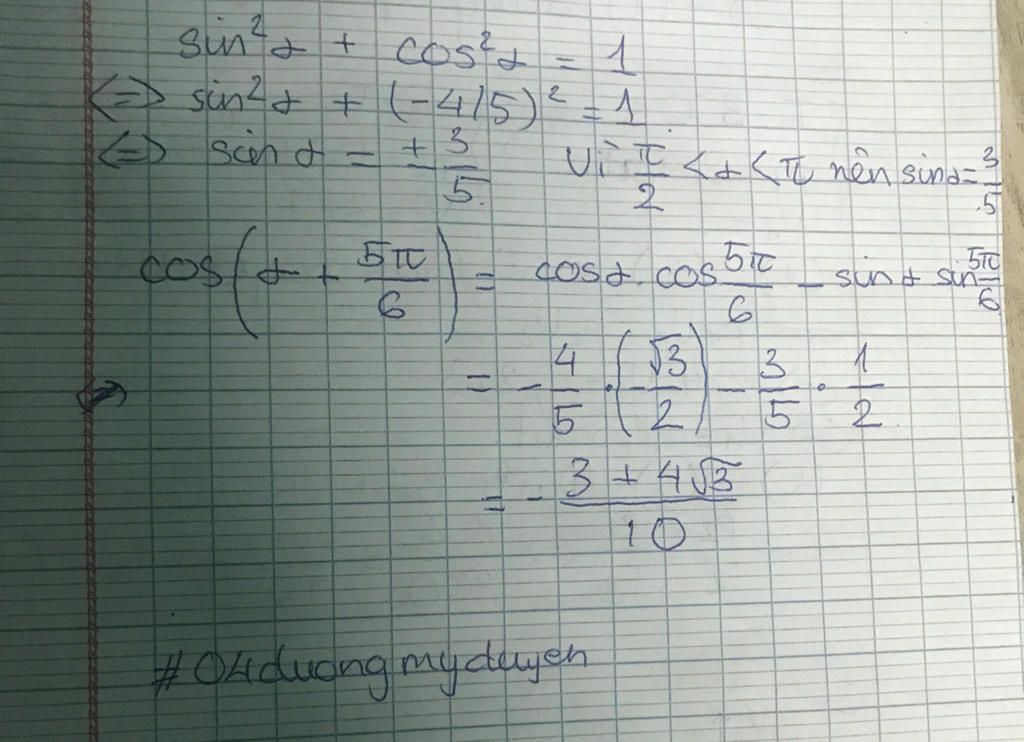 sin²α + cos²α = 1
<=> sin²α + (-4/5)² = 1
<=> sin α = ± 3/5 Vì π/2 < α < π nên sinα = 3/5
cos(α + 5π/6) = cosα . cos 5π/6 - sin α sin 5π/6
= - 4/5 . (- √3/2) - 3/5 . 1/2
= - 3 + 4√3 / 10
#04duongmyduyen